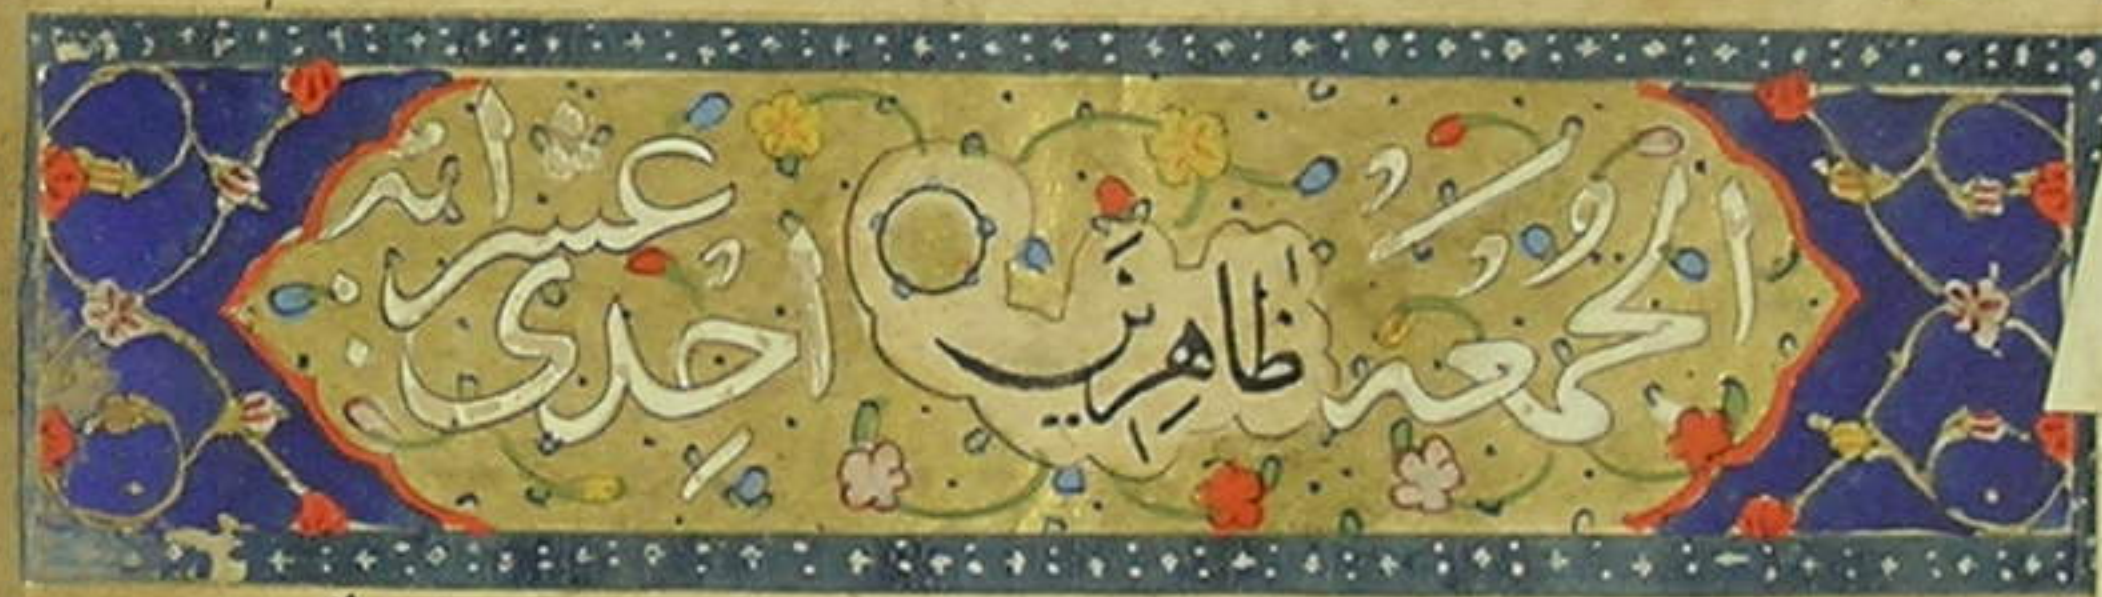 الجمعة ظَاهِرِينَ احدى عشر اية